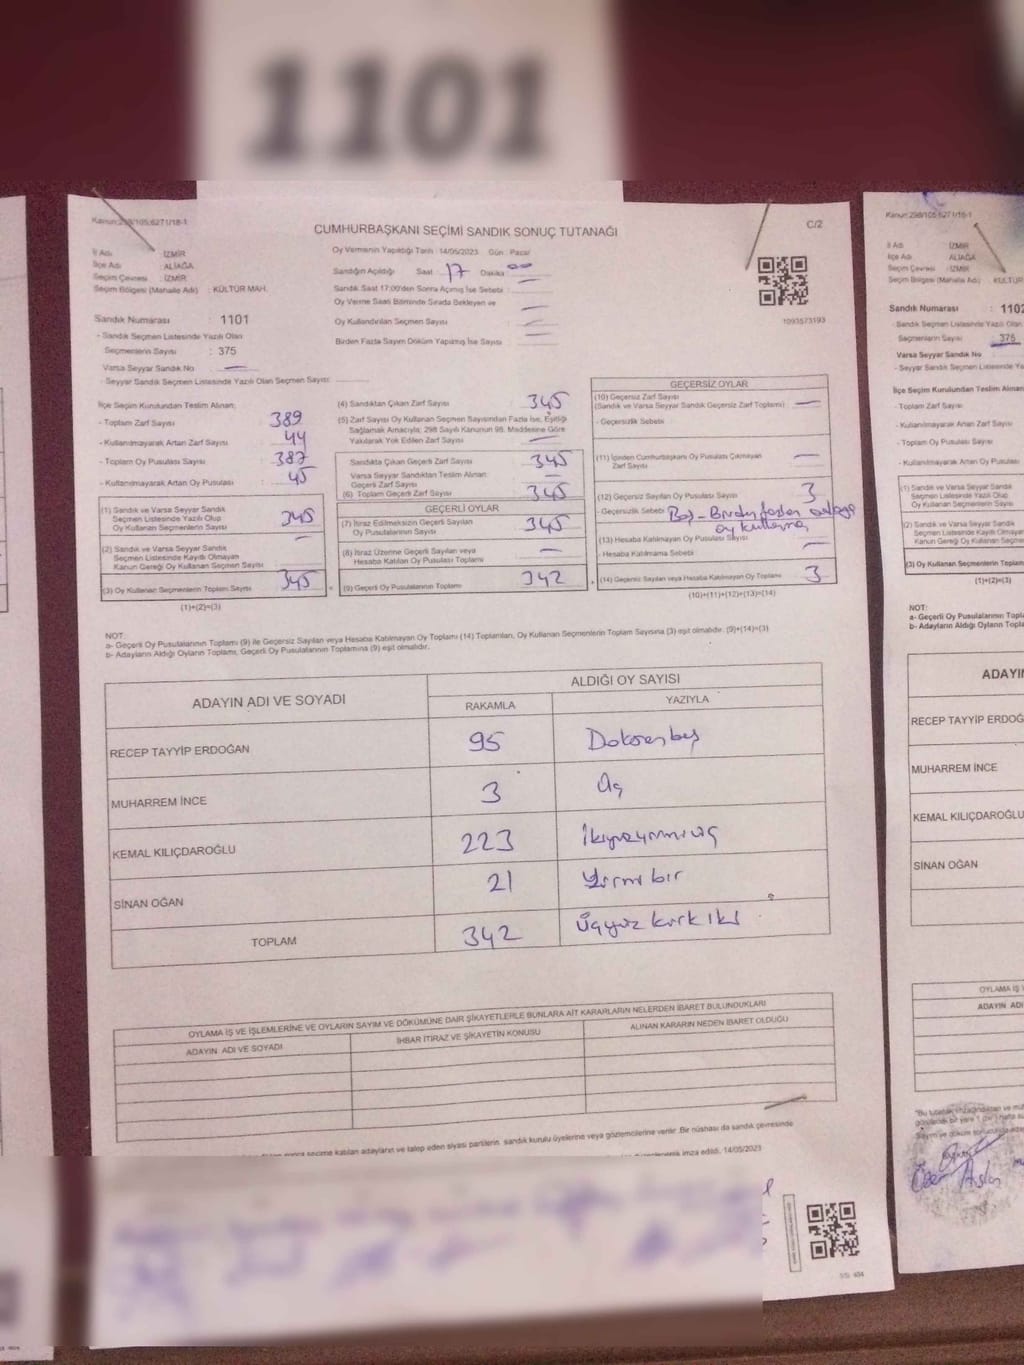 1101
Kanun:298/105;6271/18-1
C/2
CUMHURBAŞKANI SEÇİMİ SANDIK SONUÇ TUTANAĞI
İl Adı : İZMİR
İlçe Adı : ALİAĞA
Seçim Çevresi : İZMİR
Seçim Bölgesi (Mahalle Adı) : KÜLTÜR MAH.
Oy Vermenin Yapıldığı Tarih : 14/05/2023 Gün : Pazar
Sandığın Açıldığı Saat 17 Dakika 00
Sandık Saat 17:00'den Sonra Açılmış İse Sebebi :
Oy Verme Saati Bitiminde Sırada Bekleyen ve
Oy Kullandırılan Seçmen Sayısı
Birden Fazla Sayım Döküm Yapılmış İse Sayısı :
1093573193
Sandık Numarası : 1101
- Sandık Seçmen Listesinde Yazılı Olan
Seçmenlerin Sayısı : 375
Varsa Seyyar Sandık No : —
- Seyyar Sandık Seçmen Listesinde Yazılı Olan Seçmen Sayısı:
İlçe Seçim Kurulundan Teslim Alınan:
- Toplam Zarf Sayısı : 389
- Kullanılmayarak Artan Zarf Sayısı : 44
- Toplam Oy Pusulası Sayısı : 387
- Kullanılmayarak Artan Oy Pusulası : 45
(1) Sandık ve Varsa Seyyar Sandık
Seçmen Listesinde Yazılı Olup
Oy Kullanan Seçmenlerin Sayısı : 345
(2) Sandık ve Varsa Seyyar Sandık
Seçmen Listesinde Kayıtlı Olmayan
Kanun Gereği Oy Kullanan Seçmen Sayısı : —
(3) Oy Kullanan Seçmenlerin Toplam Sayısı : 345
(1)+(2)=(3)
(4) Sandıktan Çıkan Zarf Sayısı : 345
(5) Zarf Sayısı Oy Kullanan Seçmen Sayısından Fazla İse, Eşitliği
Sağlamak Amacıyla; 298 Sayılı Kanunun 98. Maddesine Göre
Yakılarak Yok Edilen Zarf Sayısı : —
Sandıkta Çıkan Geçerli Zarf Sayısı : 345
Varsa Seyyar Sandıktan Teslim Alınan
Geçerli Zarf Sayısı
(6) Toplam Geçerli Zarf Sayısı : 345
GEÇERLİ OYLAR
(7) İtiraz Edilmeksizin Geçerli Sayılan
Oy Pusulalarının Sayısı : 345
(8) İtiraz Üzerine Geçerli Sayılan veya
Hesaba Katılan Oy Pusulası Toplamı : —
(9) Geçerli Oy Pusulalarının Toplamı : 342
GEÇERSİZ OYLAR
(10) Geçersiz Zarf Sayısı
(Sandık ve Varsa Seyyar Sandık Geçersiz Zarf Toplamı) : —
- Geçersizlik Sebebi :
(11) İçinden Cumhurbaşkanı Oy Pusulası Çıkmayan
Zarf Sayısı : —
(12) Geçersiz Sayılan Oy Pusulası Sayısı : 3
- Geçersizlik Sebebi : Boş - Birden fazla adaya
oy kullanma
(13) Hesaba Katılmayan Oy Pusulası Sayısı : —
Hesaba Katılmama Sebebi :
(14) Geçersiz Sayılan veya Hesaba Katılmayan Oy Toplamı : 3
(10)+(11)+(12)+(13)=(14)
NOT:
a- Geçerli Oy Pusulalarının Toplamı (9) ile Geçersiz Sayılan veya Hesaba Katılmayan Oy Toplamı (14) Toplamları, Oy Kullanan Seçmenlerin Toplam Sayısına (3) eşit olmalıdır. (9)+(14)=(3)
b- Adayların Aldığı Oyların Toplamı, Geçerli Oy Pusulalarının Toplamına (9) eşit olmalıdır.
ADAYIN ADI VE SOYADI ALDIĞI OY SAYISI
RAKAMLA YAZIYLA
RECEP TAYYİP ERDOĞAN 95 Doksanbeş
MUHARREM İNCE 3 Üç
KEMAL KILIÇDAROĞLU 223 İkiyüzyirmiüç
SİNAN OĞAN 21 Yirmi bir
TOPLAM 342 Üçyüz kırk iki
OYLAMA İŞ VE İŞLEMLERİNE VE OYLARIN SAYIM VE DÖKÜMÜNE DAİR ŞİKAYETLERLE BUNLARA AİT KARARLARIN NELERDEN İBARET BULUNDUKLARI
ADAYIN ADI VE SOYADI İHBAR İTİRAZ VE ŞİKAYETİN KONUSU ALINAN KARARIN NEDEN İBARET OLDUĞU
seçime katılan adayların ve talep eden siyasi partilerin, sandık kurulu üyelerine veya gözlemcilerine verilir. Bir nüshası da sandık çevresinde
imza edildi. 14/05/2023
Kanun:298/105;6271/18-1
İl Adı : İZMİR
İlçe Adı : ALİAĞA
Seçim Çevresi : İZMİR
Seçim Bölgesi (Mahalle Adı) : KÜLTÜR
Sandık Numarası : 1102
- Sandık Seçmen Listesinde Yazılı Olan
Seçmenlerin Sayısı : 375
Varsa Seyyar Sandık No
- Seyyar Sandık Seçmen Listesinde Yaz
İlçe Seçim Kurulundan Teslim Alınan:
- Toplam Zarf Sayısı
- Kullanılmayarak Artan Zarf Sayısı
- Toplam Oy Pusulası Sayısı
- Kullanılmayarak Artan Oy Pusulası
(1) Sandık ve Varsa Seyyar Sandık
Seçmen Listesinde Yazılı Olup
Oy Kullanan Seçmenlerin Sayısı
(2) Sandık ve Varsa Seyyar Sandık
Seçmen Listesinde Kayıtlı Olmayan
Kanun Gereği Oy Kullanan Seçmen
(3) Oy Kullanan Seçmenlerin Toplam
(1)+(2)=(3)
NOT:
a- Geçerli Oy Pusulalarının Topla
b- Adayların Aldığı Oyların Topla
ADAYIN
RECEP TAYYİP ERDOĞ
MUHARREM İNCE
KEMAL KILIÇDAROĞLU
SİNAN OĞAN
OYLAMA İŞ V
ADAYIN ADI